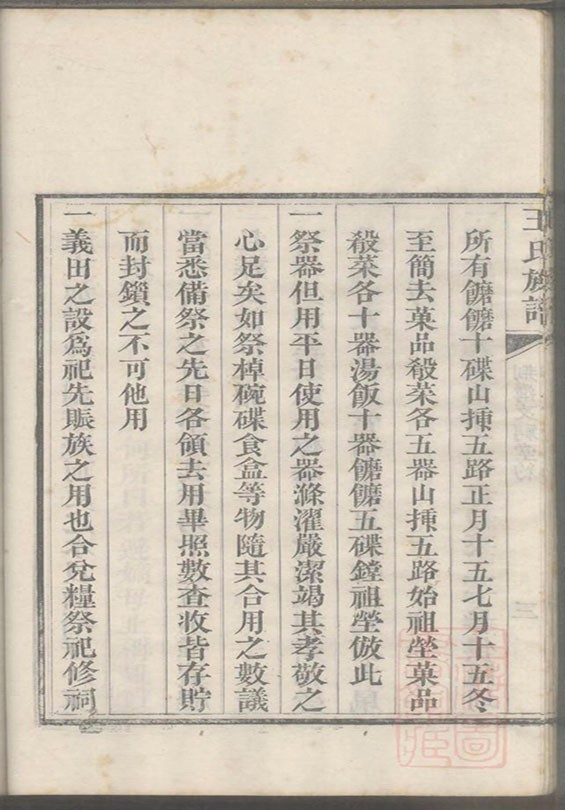 王氏族譜
所有饝饝十碟山㨂五路正月十五七月十五冬
至簡去菓品殽菜各五器山㨂五路始祖塋菓品
殽菜各十器湯飯十器饝饝五碟鏜祖塋倣此
一祭器但用平日使用之器滌濯嚴潔竭其孝敬之
心足矣如祭棹碗碟食盒等物隨其合用之數議
當悉備祭之先日各領去用畢照數查收皆存貯
而封鎖之不可他用
一義田之設爲祀先賑族之用也合兌糧祭祀修祠
三